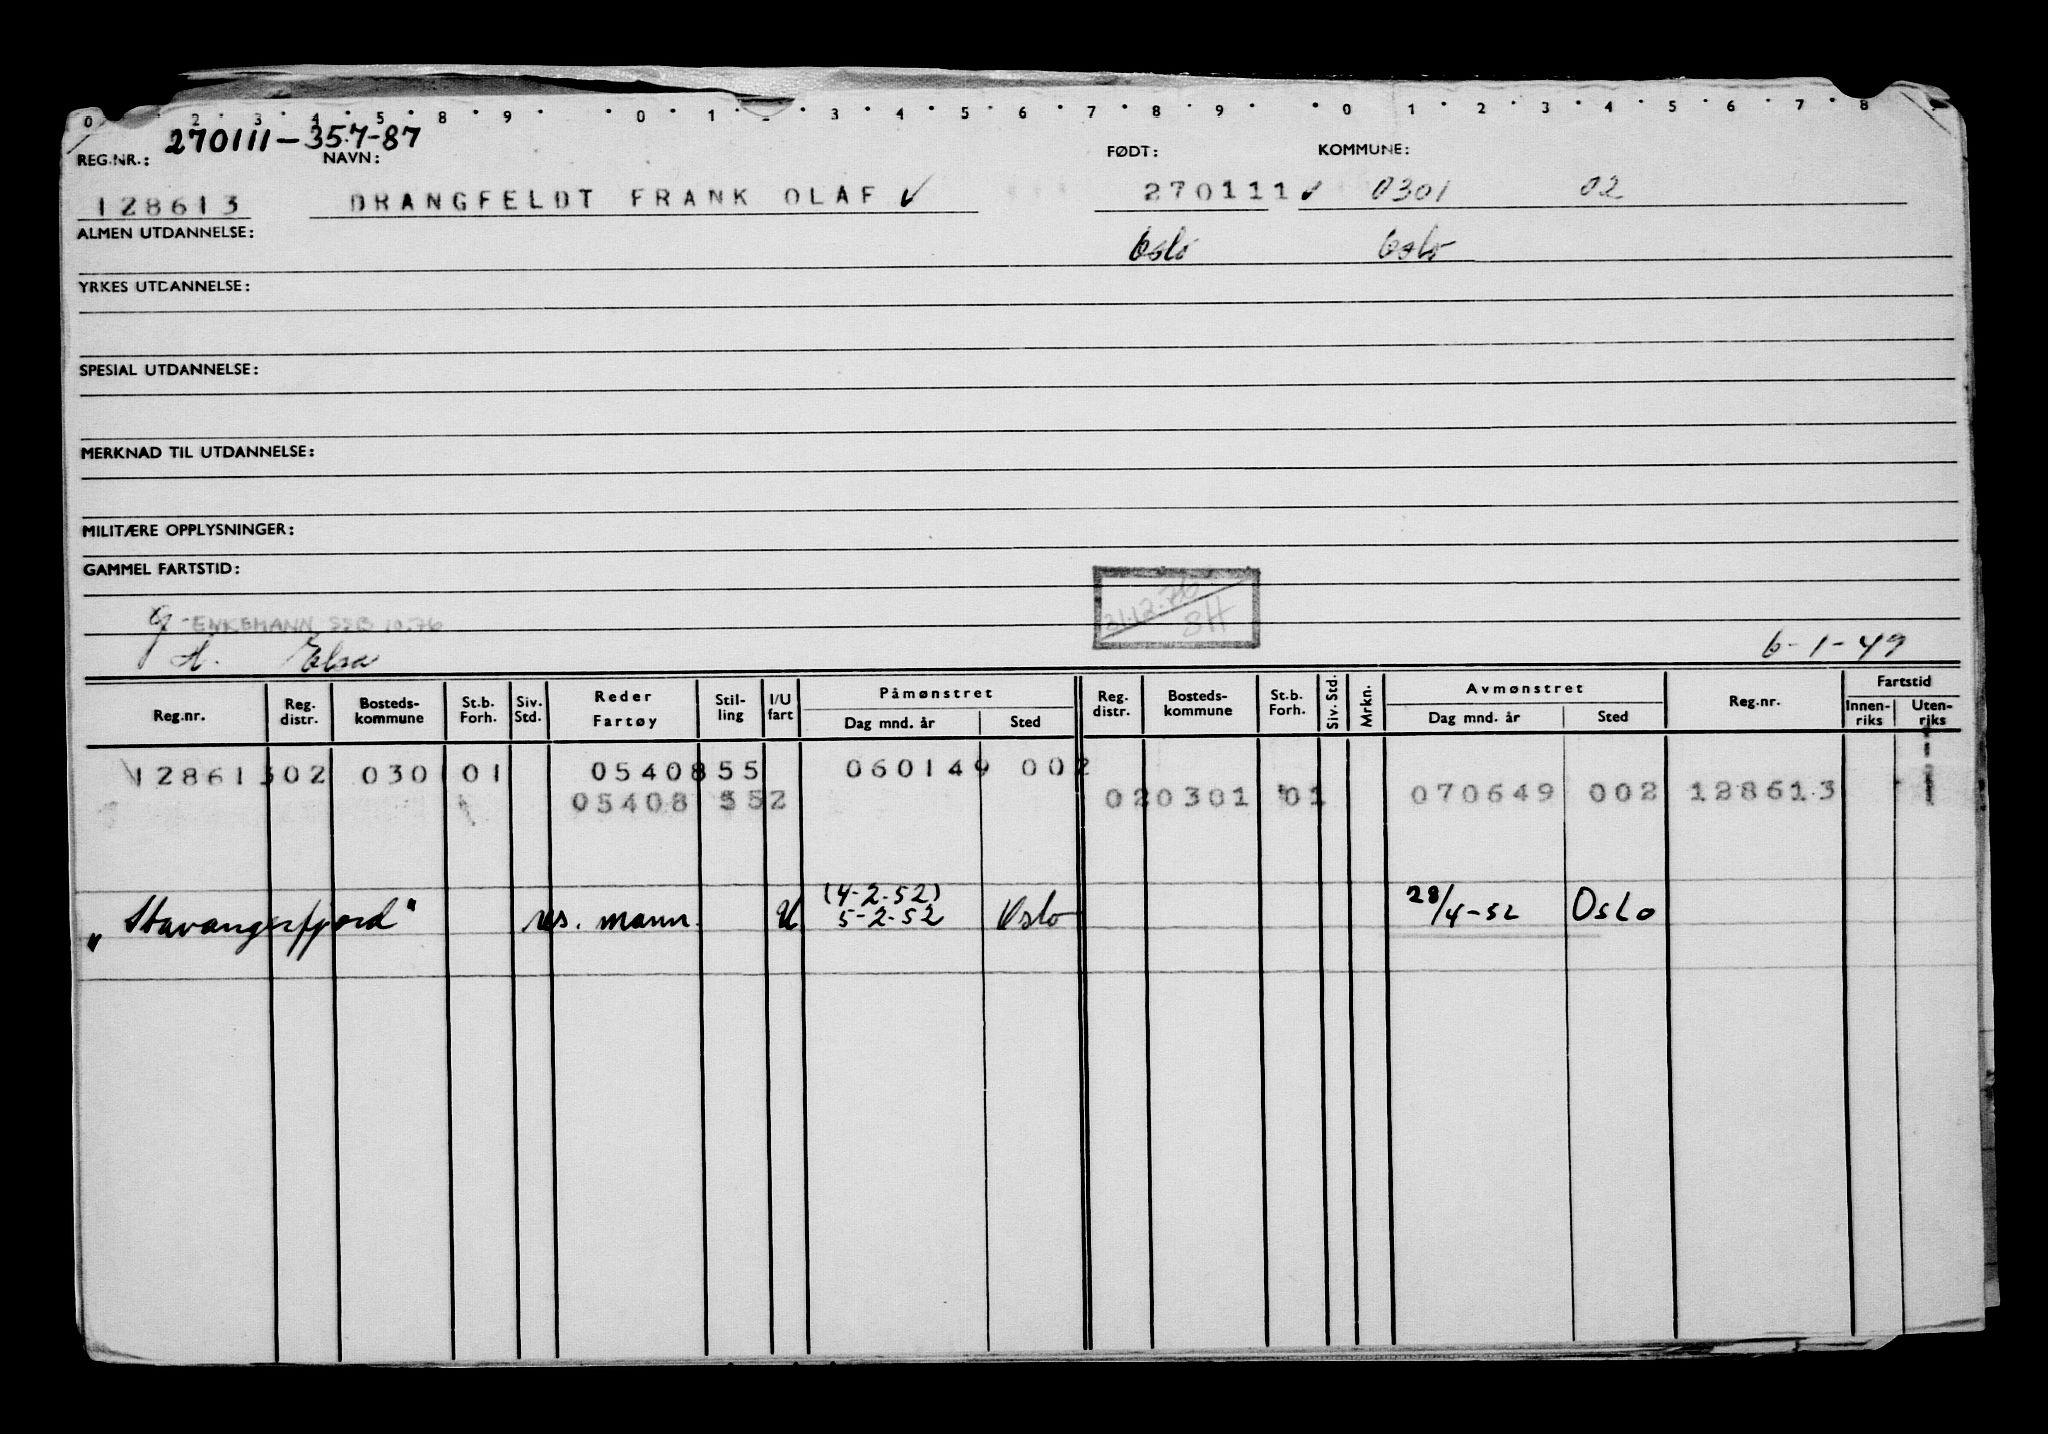 0 · 2 · 3 · 4 · 5 · 8 · 9 · · 0 · 1 · 2 · 3 · 4 · 5 · 6 · 7 · 8 · 9 · · 0 · 1 · 2 · 3 · 4 · 5 · 6 · 7 · 8 ·
270111-35.7-87
REG.NR.: NAVN: FØDT: KOMMUNE:
128613 DRANGFELDT FRANK OLAF ✓ 270111 ✓ 0301 02
ALMEN UTDANNELSE: Oslo Oslo
YRKES UTDANNELSE:
SPESIAL UTDANNELSE:
MERKNAD TIL UTDANNELSE:
MILITÆRE OPPLYSNINGER:
GAMMEL FARTSTID:
31.12.76
g - ENKEMANN SSB 10.76 SH
H. Elsa 6-1-49
Reg.nr. Reg. distr. Bosteds- kommune St.b. Forh. Siv. Std. Reder Fartøy Stil- ling I/U fart Påmønstret Dag mnd. år Sted Reg. distr. Bosteds- kommune St.b. Forh. Siv. Std. Mrkn. Avmønstret Dag mnd. år Sted Reg.nr. Fartstid Innen- riks Uten- riks
128613 02 0301 01 05408 55 060149 002
05408 552 02 0301 01 070649 002 128613
(4-2-52)
„Stavangerfjord" res. mann. U 5-2-52 Oslo 28/4-52 Oslo